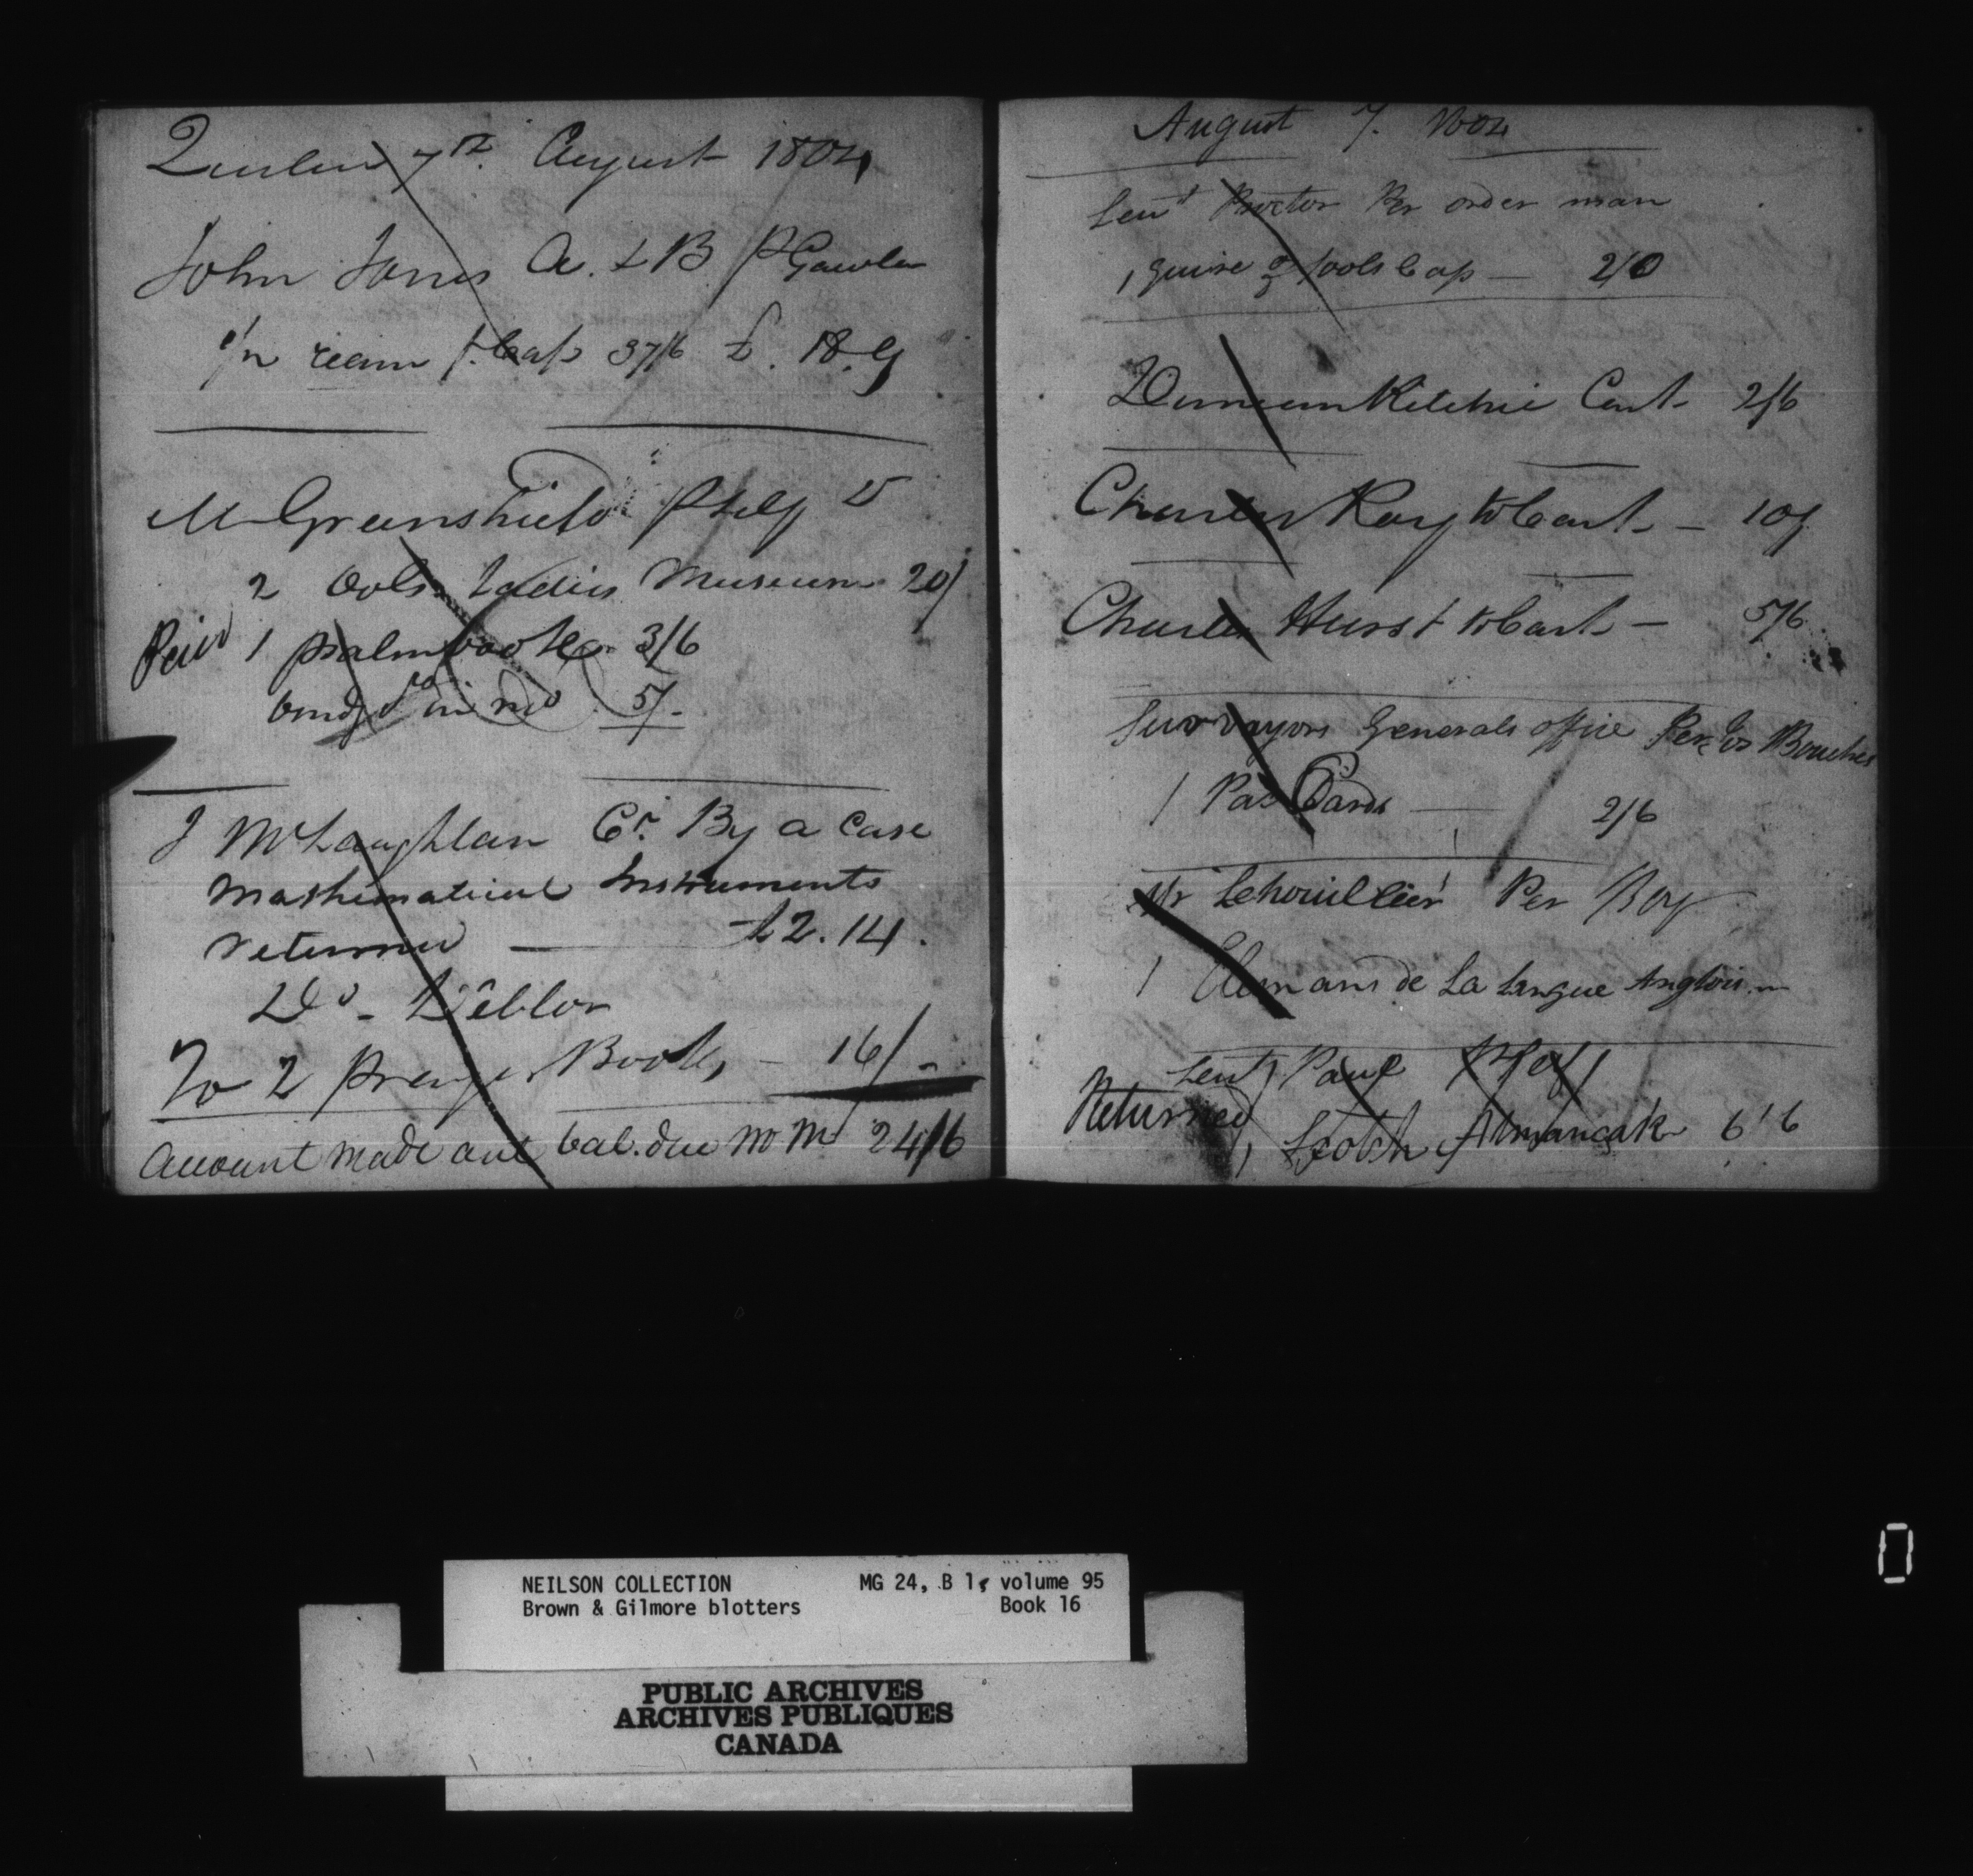 Quebec 7th. August 1804
John Jones A. & B P Gawler
1/2 ream f. Cap 37/6 £. 18.9
M Greenshield Pself Dr
2 Vols. Ladies Museum 20/
Paid 1 psalm book 3/6
bound in red 5/-
J McLaughlan Cr. By a Case
Mathematical Instruments
returned — £2.14.
Do - Debtor
To 2 prayer Books, - 16/-
Account made out bal. due Mr M 24/6
August 7. 1804
Leut Proctor Per order man
1 quire of fools Cap — 2/0
Duncan Ritchie Cart 2/6
Charles Roy to Cart - 10/
Charles Hurst to Cart - 5/6
Survayors Generals office Per Jos Bouchet
1 Pas Cards — 2/6
Mr Lehouillier Per Boy
1 Elemans de La Langue Anglois
Leut Paul Pself
Returned 1 Scotch Almancak 6'6
NEILSON COLLECTION MG 24, B 1, volume 95
Brown & Gilmore blotters Book 16
PUBLIC ARCHIVES
ARCHIVES PUBLIQUES
CANADA